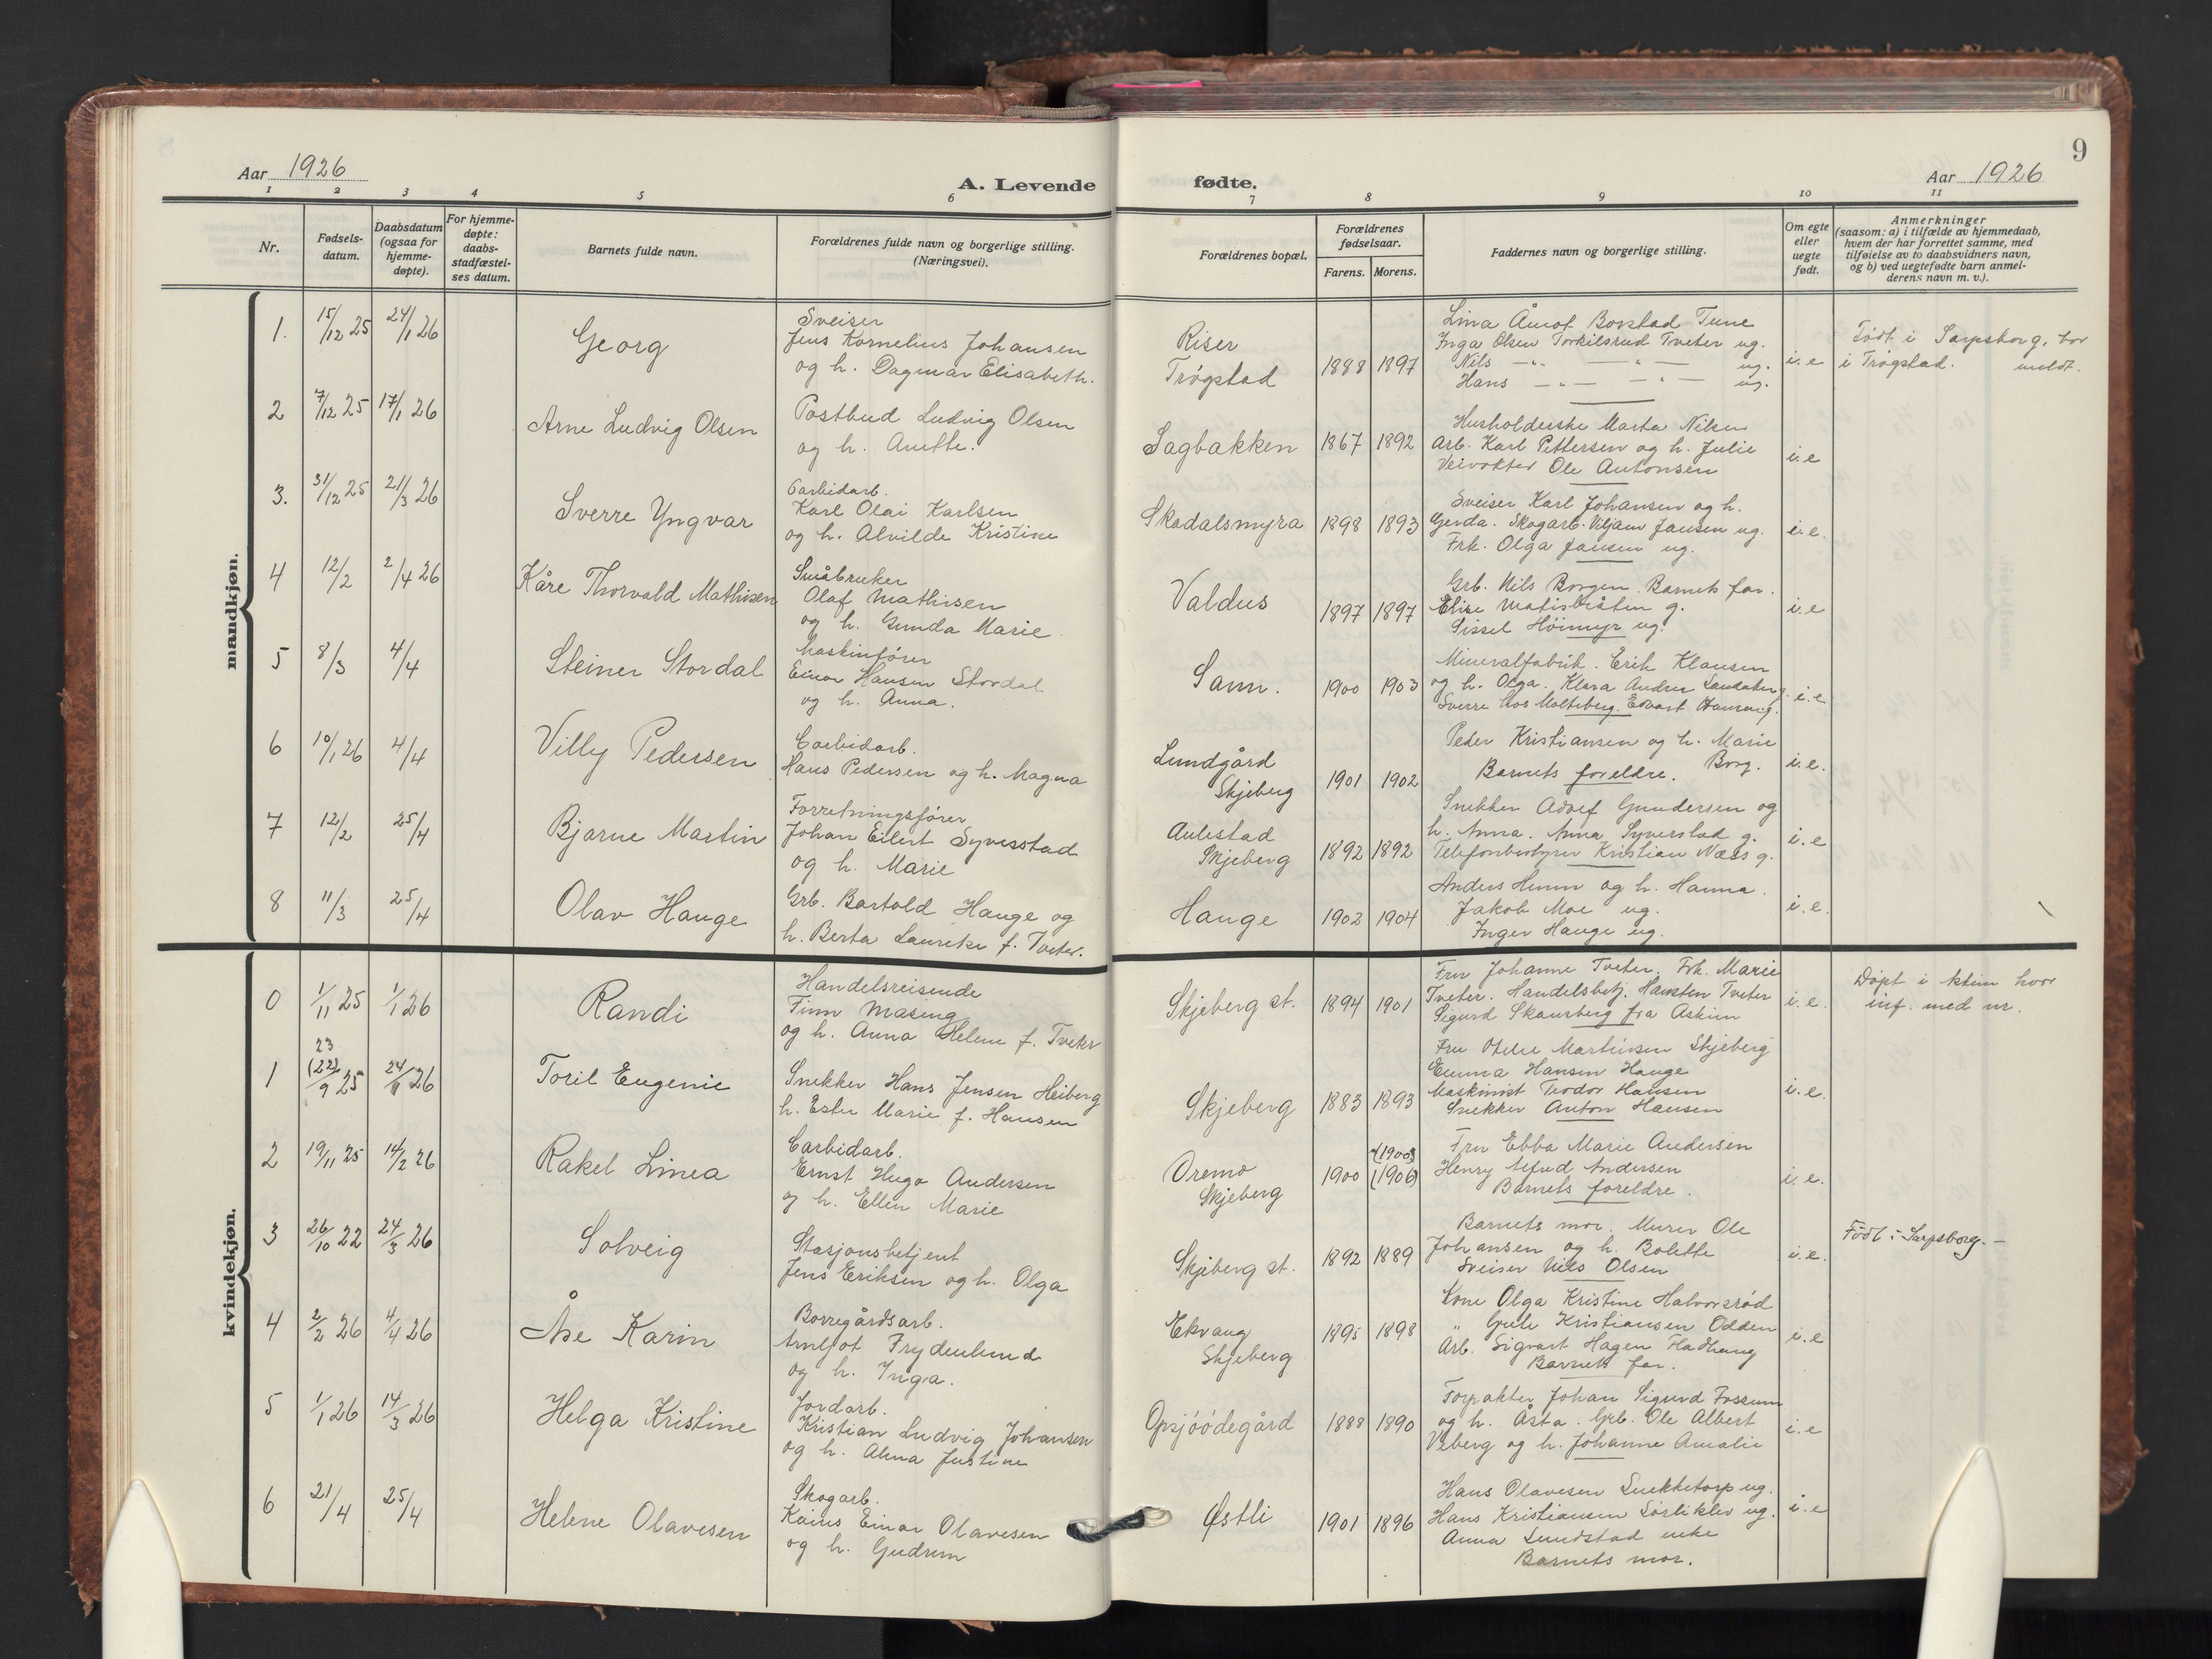 Aar 1926
A. Levende
1 2 3 4 5 6
Nr.
Fødsels-
datum.
Daabsdatum
(ogsaa for
hjemme-
døpte).
For hjemme-
døpte:
daabs-
stadfæstel-
ses datum.
Barnets fulde navn.
Forældrenes fulde navn og borgerlige stilling.
(Næringsvei).
mandkjøn.
1. 15/12 25 24/1 26 Georg
Sveiser
Jens Kornelius Johansen
og h. Dagmar Elisabeth.
2 7/12 25 17/1 26 Arne Ludvig Olsen
Postbud Ludvig Olsen
og h. Anette.
3. 31/12 25 21/3 26 Sverre Yngvar
Carbidarb.
Karl Olai Karlsen
og h. Alvilde Kristine
4 12/2 2/4 26 Kåre Thorvald Mathisen
Småbruker
Olaf Mathisen
og h. Gunda Marie
5 8/3 4/4 Steiner Stordal
Maskinfører
Einar Hansen Stordal
og h. Anna.
6 10/1 26 4/4 Villy Pedersen
Carbidarb.
Hans Pedersen og h. Magna
7 12/2 25/4 Bjarne Martin
Forretningsfører
Johan Eilert Syversstad
og h. Marie
8 11/3 25/4 Olav Hauge
Grb. Bartold Hauge og
h. Berta Laurtke f. Tveter.
kvindekjøn.
0 1/11 25 1/1 26 Randi
Handelsreisende
Finn Masing
og h. Anna Helene f. Tveter
23
1 (22)/9 25 24/1 26 Toril Eugenie
Snekker Hans Jensen Heiberg
h. Ester Marie f. Hansen
2 19/11 25 14/2 26 Rakel Linea
Carbidarb.
Ernst Hugo Andersen
og h. Ellin Marie
3 26/10 22 24/3 26 Solveig
Stasjonsbetjent
Jens Eriksen og h. Olga
4 2/2 26 4/4 26 Åse Karin
Borregårdsarb.
Arnljot Frydenlund
og h. Inga.
5 1/1 26 14/3 26 Helga Kristine
Jordarb.
Kristian Ludvig Johansen
og h. Alma Justine
6 21/4 25/4 Helene Olavesen
Skogarb.
Kaius Einar Olavesen
og h. Gudrun
9
fødte.
Aar 1926
7 8 9 10 11
Forældrenes bopæl.
Forældrenes
fødselsaar.
Farens. Morens.
Faddernes navn og borgerlige stilling.
Om egte
eller
uegte
født.
Anmerkninger
(saasom: a) i tilfælde av hjemmedaab,
hvem der har forrettet samme, med
tilføielse av to daabsvidners navn,
og b) ved uegtefødte barn anmel-
derens navn m. v.).
Riser
Trøgstad
1888 1897
Lina Åmot Borstad Tune
Inga Olsen Torkilsrud Tveter ug.
Nils —"— —"— ug.
Hans —"— —"— ug.
i. e
Født i Sarpsborg, bor
i Trøgstad. meldt.
Sagbakken 1867 1892
Husholderske Marta Nilsen
Arb. Karl Pettersen og h. Julie
Veivokter Ole Antonsen
i. e
Skadalsmyra 1898 1893
Sveiser Karl Johansen og h.
Gerda. Skogarb. Viljam Jansen ug.
Frk. Olga Jansen ug.
i. e.
Valdus 1897 1897
Grb. Nils Borgen. Barnets far.
Elise g.
Sissel Høimyr ug.
i. e
Sann. 1900 1903
Mineralfabrik. Erik Klausen
og h. Olga. Klara Andrea
Sverre Molteberg. Edvart
i. e
Lundgård
Skjeberg
1901 1902
Peder Kristiansen og h. Marie
Borg.
Barnets foreldre.
i. e.
Aulestad
Skjeberg
1892 1892
Snekker Adolf Gundersen og
h. Anna. Anna Syverstad g.
Telefonbestyrer Kristian Næss g.
i. e
Hauge 1902 1904
Anders Hunn og h. Hanna.
Jakob Moe ug.
Inger Hauge ug.
i. e.
Skjeberg st. 1894 1901
Fru Johanne Tveter. Frk. Marie
Tveter. Handelsbetj. Karsten Tveter
Sigurd Skaursberg fra Askim
i. e.
Døpt i
inf. med nr.
Skjeberg 1883 1893
Fru Otelie Martinsen Skjeberg
Emma Hansen Hauge
Maskinist Teodor Hansen
Snekker Anton Hansen
i. e.
Oremo
Skjeberg
1900 (1906)
Fru Ebba Marie Andersen
Henry Alfred Andersen
Barnets foreldre.
i. e.
Skjeberg st. 1892 1889
Barnets mor. Murer Ole
Johansen og h. Bolette
Sveiser Nils Olsen
i. e.
Født i Sarpsborg. —
Ekvang
Skjeberg
1895 1898
Kone Olga Kristine Halvorsrød
" Gule Kristiansen Odden
Arb. Sigvart Hagen
Barnets far.
i. e
Opsjöödegård 1888 1890
Forpakter Johan Sigurd Fossum
og h. Åsta. Grb. Ole Albert
Viberg og h. Johanne Amalie
i. e
Østli 1901 1896
Hans Olavesen Snekketorp ug.
Hans Kristiansen Sørliklev ug.
Anna Lundstad enke
Barnets mor.
i. e